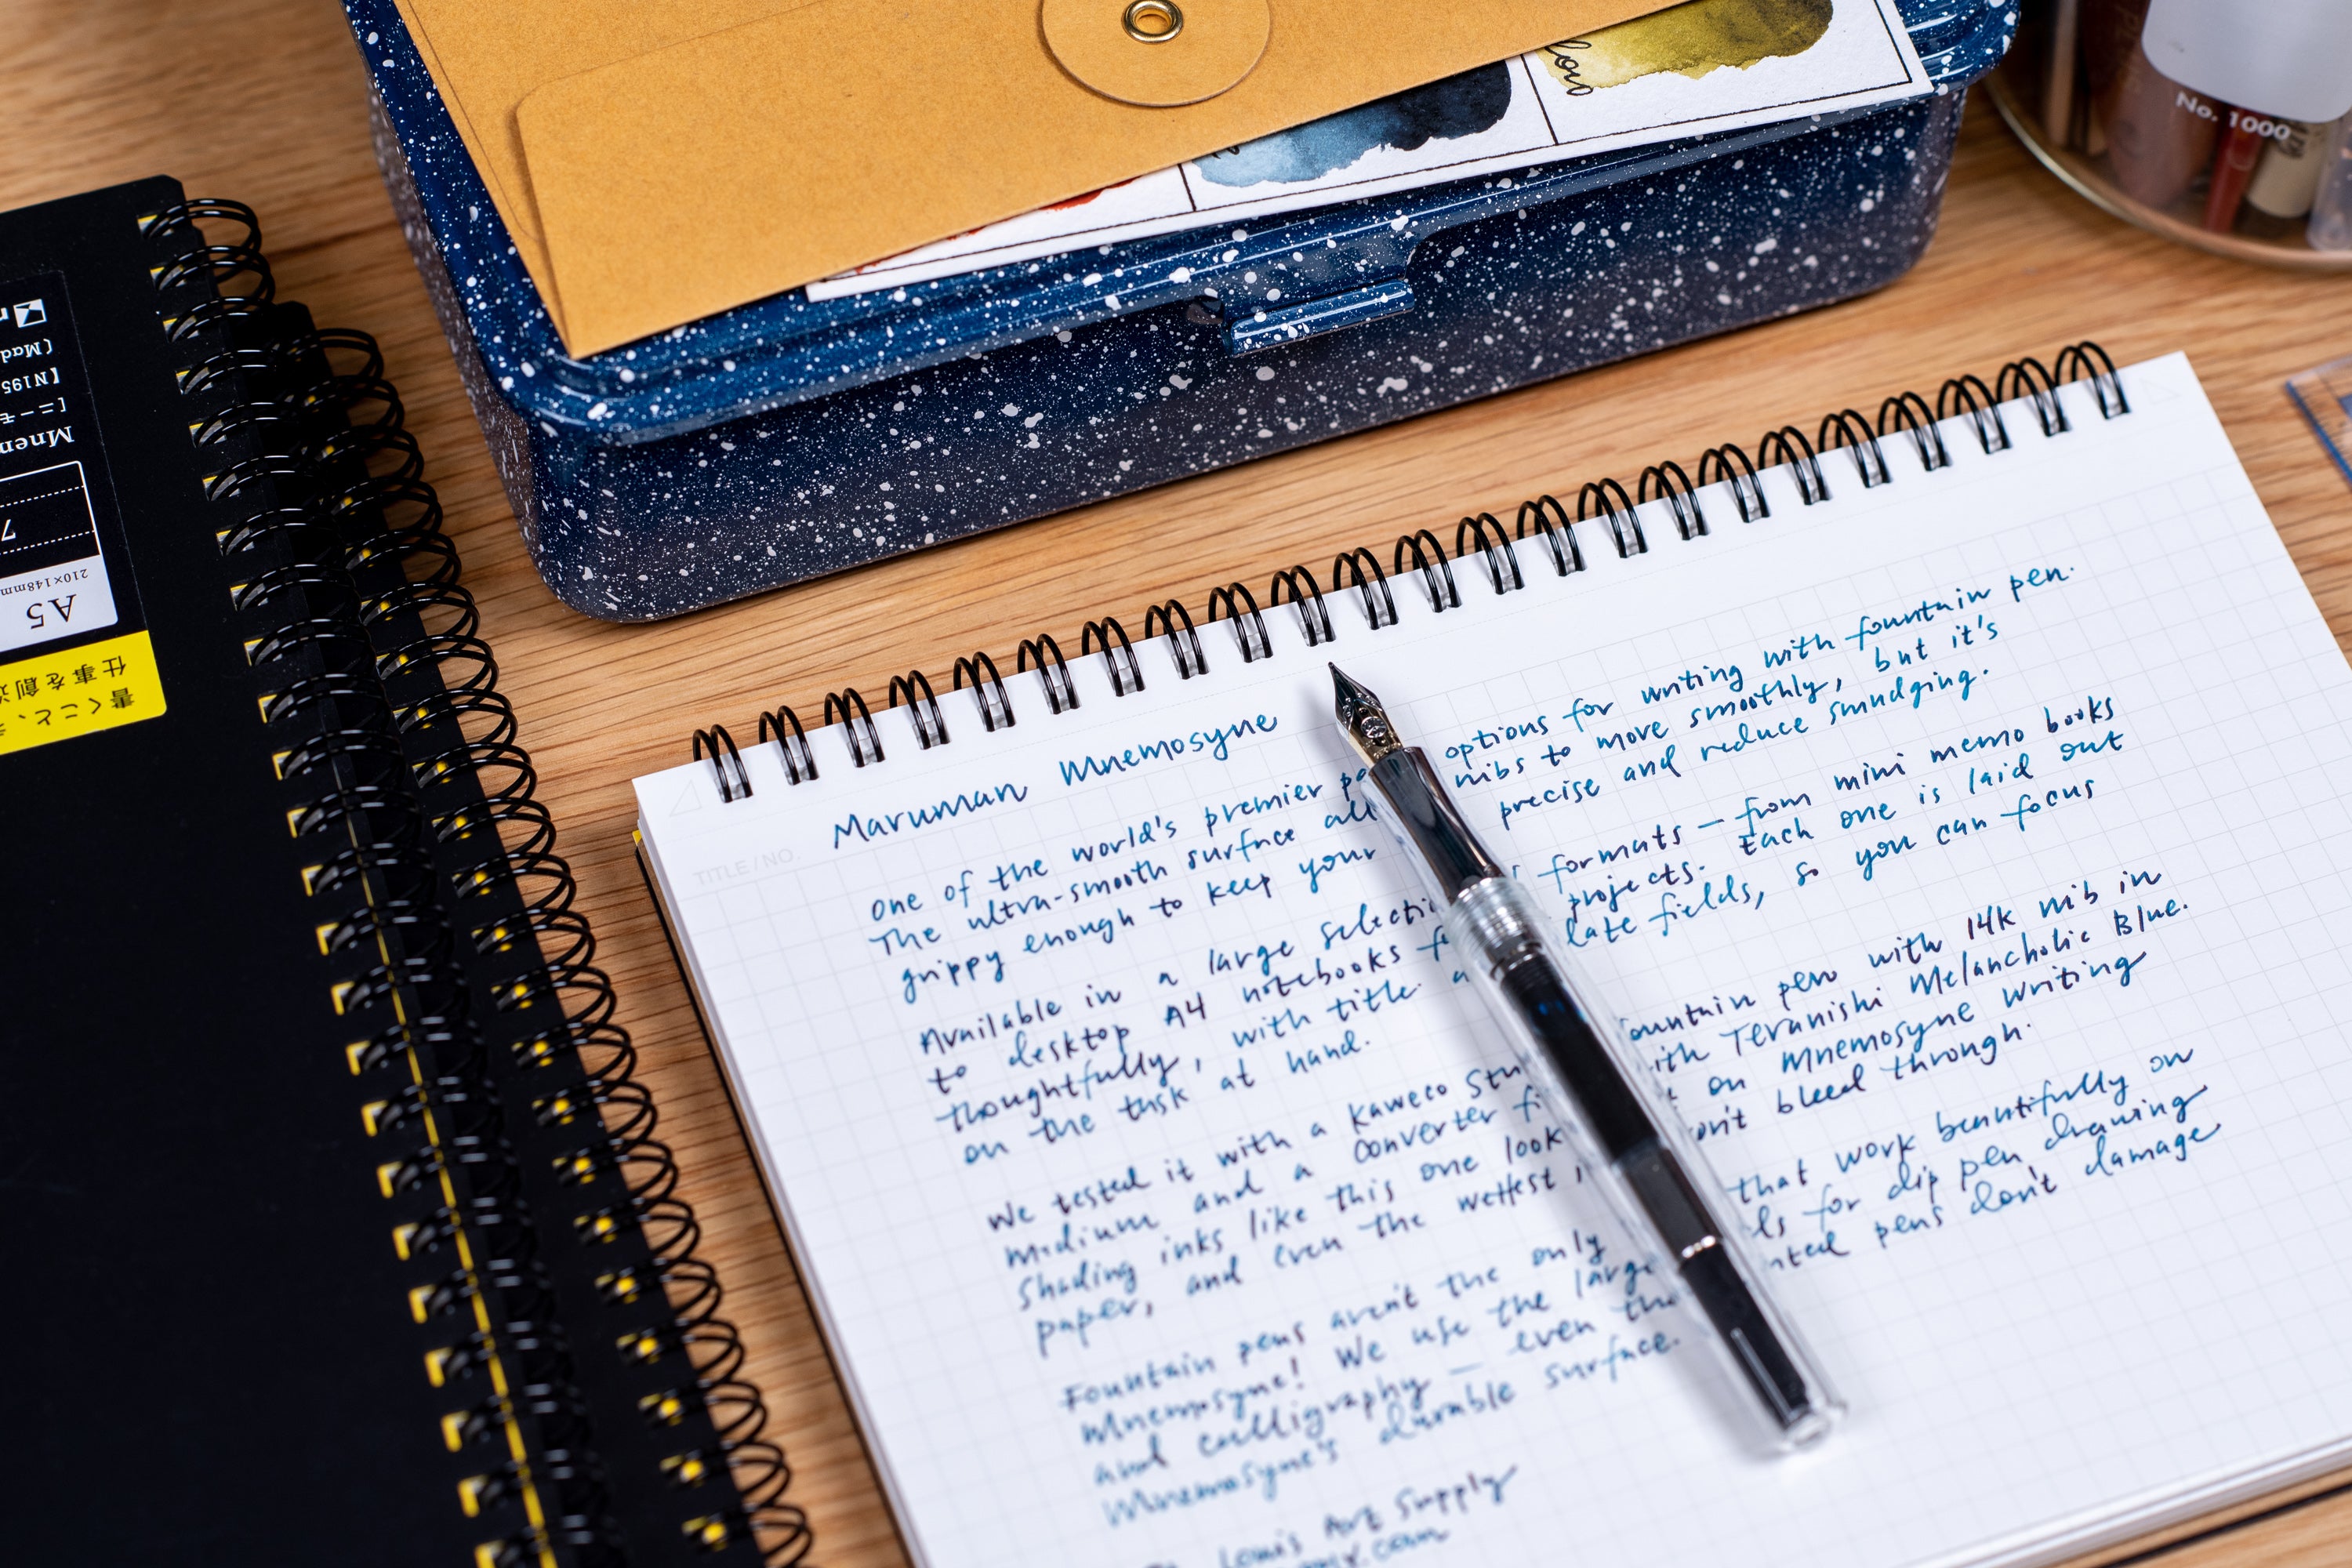 No. 1000
Mnem
7
A5
210×148mm
書くこと、
仕事を創造
TITLE / NO.
Maruman Mnemosyne
One of the world's premier options for writing with fountain pen.
The ultra-smooth surface nibs to move smoothly, but it's
grippy enough to keep your precise and reduce smudging.
Available in a large formats — from mini memo books
to desktop A4 notebooks projects. Each one is laid out
thoughtfully, with title fields, so you can focus
on the task at hand.
We tested it with a Kaweco pen with 14K nib in
Medium and a converter Teranishi Melancholic Blue.
Shading inks like this one look on Mnemosyne writing
paper, and even the wettest bleed through.
Fountain pens aren't the only that work beautifully on
Mnemosyne! We use the large for dip pen drawing
and calligraphy — even the pens don't damage
Mnemosyne's durable surface.
Louis Art Supply